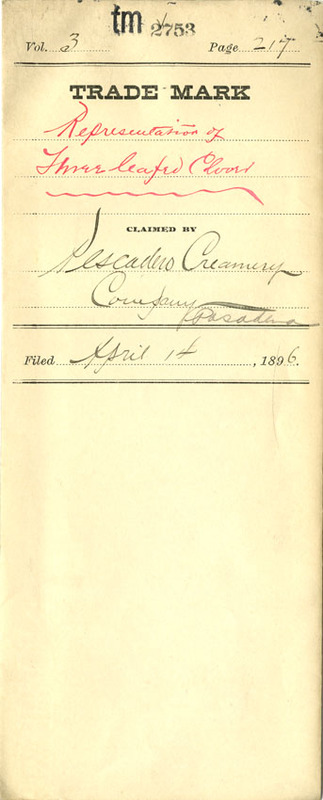 tm 2753
Vol. 3 Page 217
TRADE MARK
Representation of
Three leafed Clover
CLAIMED BY
Pescadero Creamery
Company
Pasadena
Filed April 14, 1896.